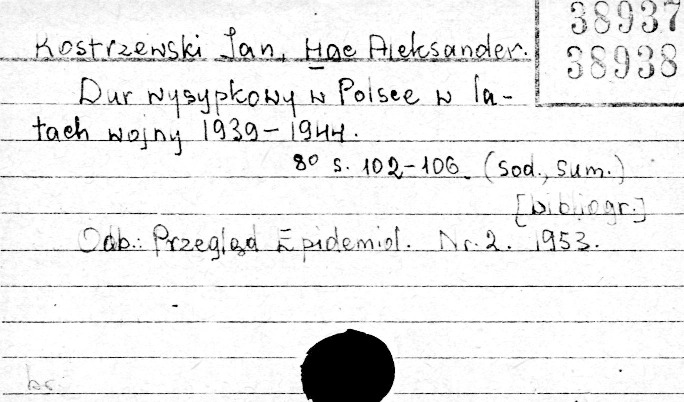 38937
38938
Kostrzewski Jan, Hac Aleksander.
Dur wysypkowy w Polsce w la-
tach wojny 1939-1944.
8° s. 102-106. (Sod., Sum.)
[bibliogr.]
Odb.: Przegląd Epidemiol. Nr. 2. 1953.